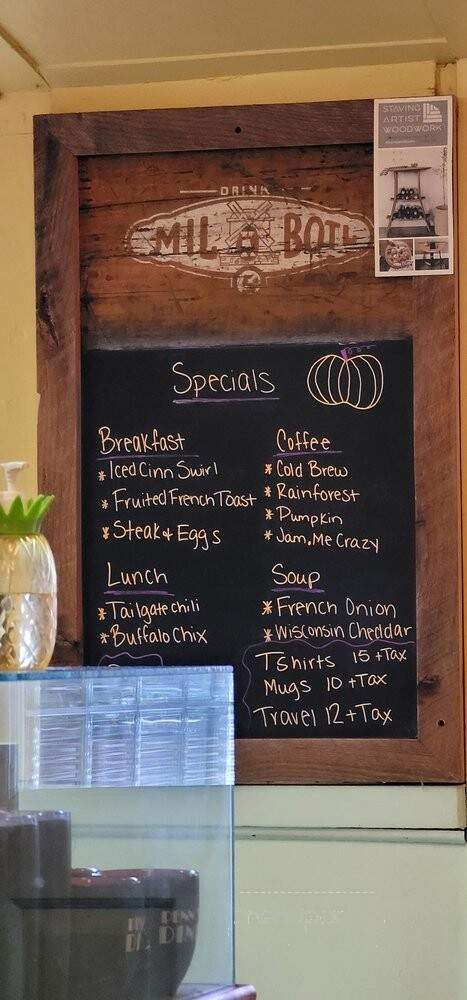 STAVING
ARTIST
WOODWORK
DRINK
MIL BOTL
Specials
Breakfast
* Iced Cinn Swirl
* Fruited French Toast
* Steak & Eggs
Coffee
* Cold Brew
* Rainforest
* Pumpkin
* Jam.Me Crazy
Lunch
* Tailgate chili
* Buffalo Chix
Soup
* French Onion
* Wisconsin Cheddar
Tshirts 15 +Tax
Mugs 10 +Tax
Travel 12 +Tax